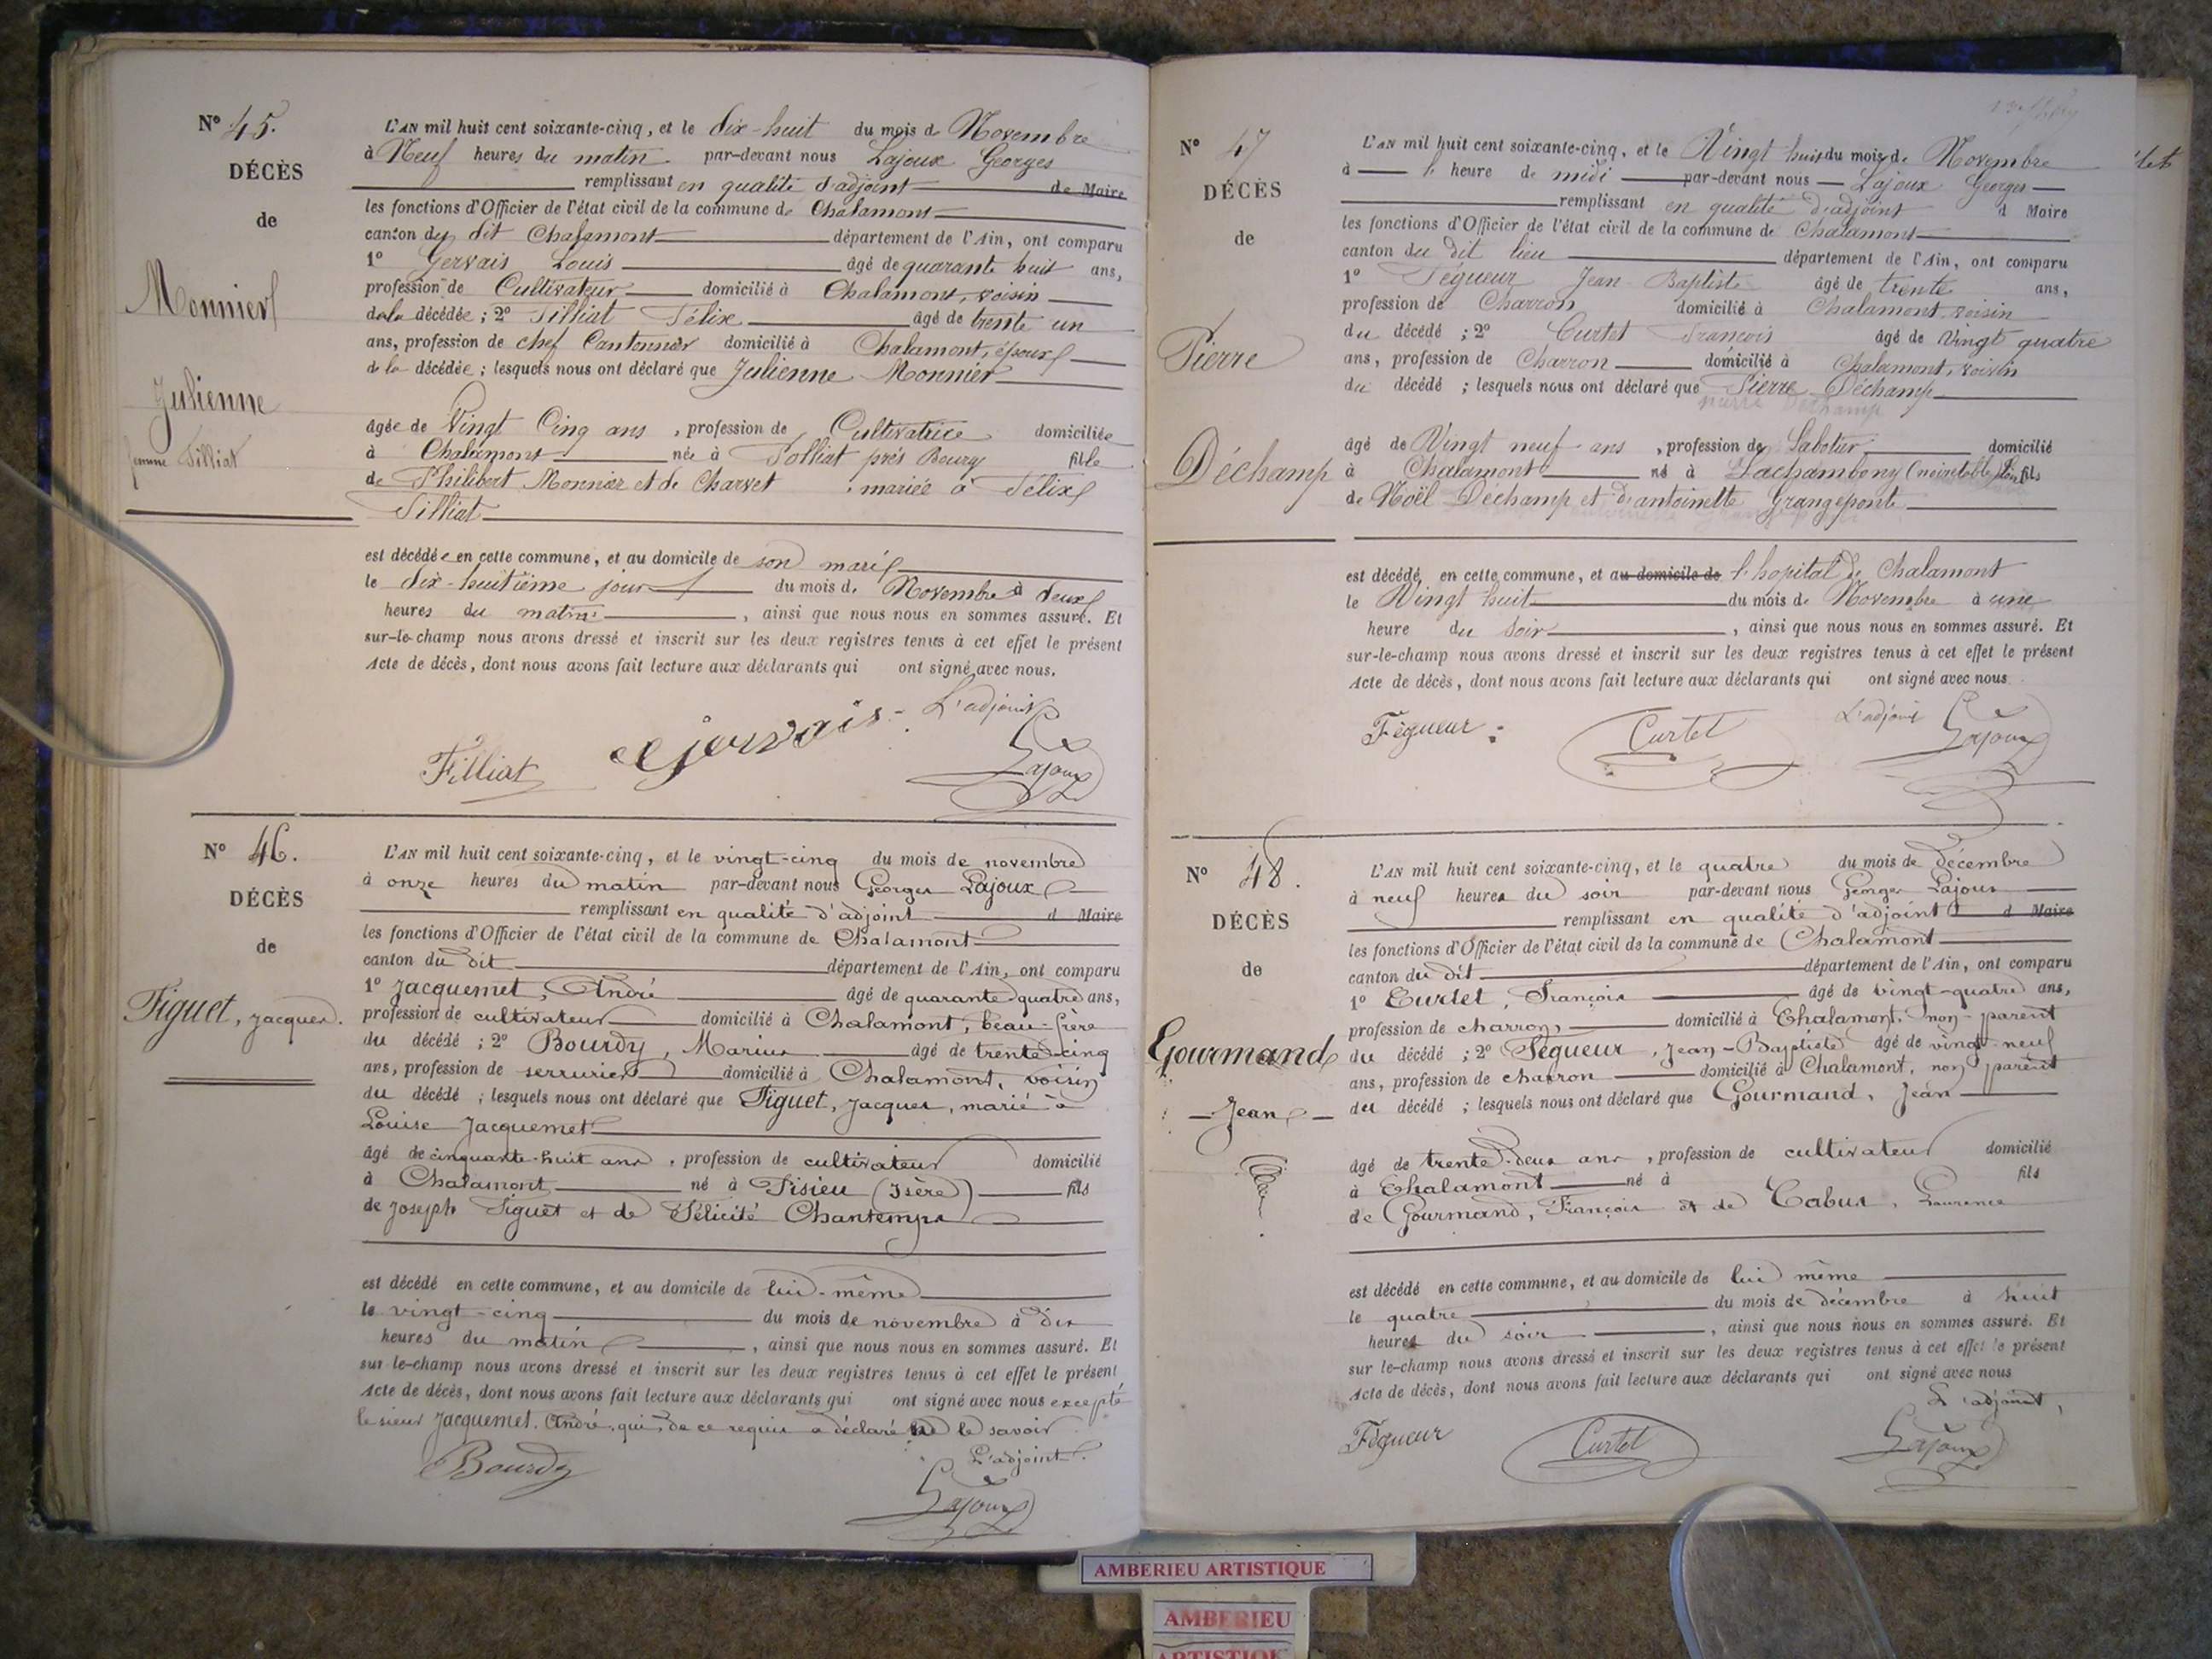 Nº 45.
DÉCÈS
de
Monnier
Julienne
femme Filliat
L'AN mil huit cent soixante-cinq, et le dix-huit du mois d Novembre
à Neuf heures du matin par-devant nous Lajoux Georges
remplissant en qualité d'adjoint de Maire
les fonctions d'Officier de l'état civil de la commune de Chalamont
canton du dit Chalamont département de l'Ain, ont comparu
1º Gervais Louis âgé de quarante huit ans,
profession de Cultivateur domicilié à Chalamont, voisin
de la décédée ; 2º Filliat Félix âgé de trente un
ans, profession de chef Cantonnier domicilié à Chalamont, époux
de la décédée ; lesquels nous ont déclaré que Julienne Monnier
âgée de Vingt Cinq ans , profession de Cultivatrice domiciliée
à Chalamont née à Polliat près Bourg fille
de Philibert Monnier et de Charvet , mariée à Félix
Filliat
est décédée en cette commune, et au domicile de son mari
le dix-huitième jour du mois d. Novembre à deux
heures du matin , ainsi que nous nous en sommes assuré. Et
sur-le-champ nous avons dressé et inscrit sur les deux registres tenus à cet effet le présent
Acte de décès, dont nous avons fait lecture aux déclarants qui ont signé avec nous.
L'adjoint
Filliat Gervais Lajoux
Nº 46.
DÉCÈS
de
Figuet, Jacques.
L'AN mil huit cent soixante-cinq, et le vingt-cinq du mois de novembre
à onze heures du matin par-devant nous Georges Lajoux
remplissant en qualité d'adjoint d Maire
les fonctions d'Officier de l'état civil de la commune de Chalamont
canton du dit département de l'Ain, ont comparu
1º Jacquemet, André âgé de quarante quatre ans,
profession de cultivateur domicilié à Chalamont, beau-frère
du décédé ; 2º Bourdy, Marius âgé de trente-cinq
ans, profession de serrurier domicilié à Chalamont, voisin
du décédé ; lesquels nous ont déclaré que Figuet, Jacques, marié à
Louise Jacquemet
âgé de cinquante-huit ans , profession de cultivateur domicilié
à Chalamont né à Pisieu (Isère) fils
de Joseph Figuet et de Félicité Chantemps
est décédé en cette commune, et au domicile de lui-même
le vingt-cinq du mois de novembre à dix
heures du matin , ainsi que nous nous en sommes assuré. Et
sur le-champ nous avons dressé et inscrit sur les deux registres tenus à cet effet le présent
Acte de décès, dont nous avons fait lecture aux déclarants qui ont signé avec nous excepté
le sieur Jacquemet. André. qui, de ce requis a déclaré ne le savoir
L'adjoint.
Bourdy Lajoux
Nº 47
DÉCÈS
de
Pierre
Déchamp
L'AN mil huit cent soixante-cinq, et le Vingt huit du mois de Novembre
à heure de midi par-devant nous Lajoux Georges
remplissant en qualité d'adjoint d Maire
les fonctions d'Officier de l'état civil de la commune de Chalamont
canton du dit lieu département de l'Ain, ont comparu
1º Fégueur Jean Baptiste âgé de trente ans,
profession de Charron domicilié à Chalamont, voisin
du décédé ; 2º Curtet François âgé de Vingt quatre
ans, profession de Charron domicilié à Chalamont, voisin
du décédé ; lesquels nous ont déclaré que Pierre Déchamp
pierre Déchamp
âgé de Vingt neuf ans , profession de Sabotier domicilié
à Chalamont né à Lachambony (noiretable) fils
de Noël Déchamp et d'antoinette Grangeponte
est décédé en cette commune, et au domicile de l'hopital de Chalamont
le Vingt huit du mois d. Novembre à une
heure du Soir , ainsi que nous nous en sommes assuré. Et
sur-le-champ nous avons dressé et inscrit sur les deux registres tenus à cet effet le présent
Acte de décès, dont nous avons fait lecture aux déclarants qui ont signé avec nous
L'adjoint
Fégueur Curtet Lajoux
Nº 48.
DÉCÈS
de
Gourmand
Jean
L'AN mil huit cent soixante-cinq, et le quatre du mois de décembre
à neuf heures du soir par-devant nous Georges Lajoux
remplissant en qualité d'adjoint d Maire
les fonctions d'Officier de l'état civil de la commune de Chalamont
canton du dit département de l'Ain, ont comparu
1º Curtet, François âgé de vingt-quatre ans,
profession de charron, domicilié à Chalamont, non-parent
du décédé ; 2º Fégueur, Jean-Baptiste âgé de vingt-neuf
ans, profession de charron domicilié à Chalamont, non parent
du décédé ; lesquels nous ont déclaré que Gourmand, Jean
âgé de trente-deux ans , profession de cultivateur domicilié
à Chalamont né à fils
de Gourmand, François et de Cabus, Laurence
est décédé en cette commune, et au domicile de lui même
le quatre du mois de décembre à huit
heures du soir , ainsi que nous nous en sommes assuré. Et
sur le-champ nous avons dressé et inscrit sur les deux registres tenus à cet effet le présent
Acte de décès, dont nous avons fait lecture aux déclarants qui ont signé avec nous
L'adjoint,
Fégueur Curtet Lajoux
AMBERIEU ARTISTIQUE
AMBERIEU
ARTISTIQUE